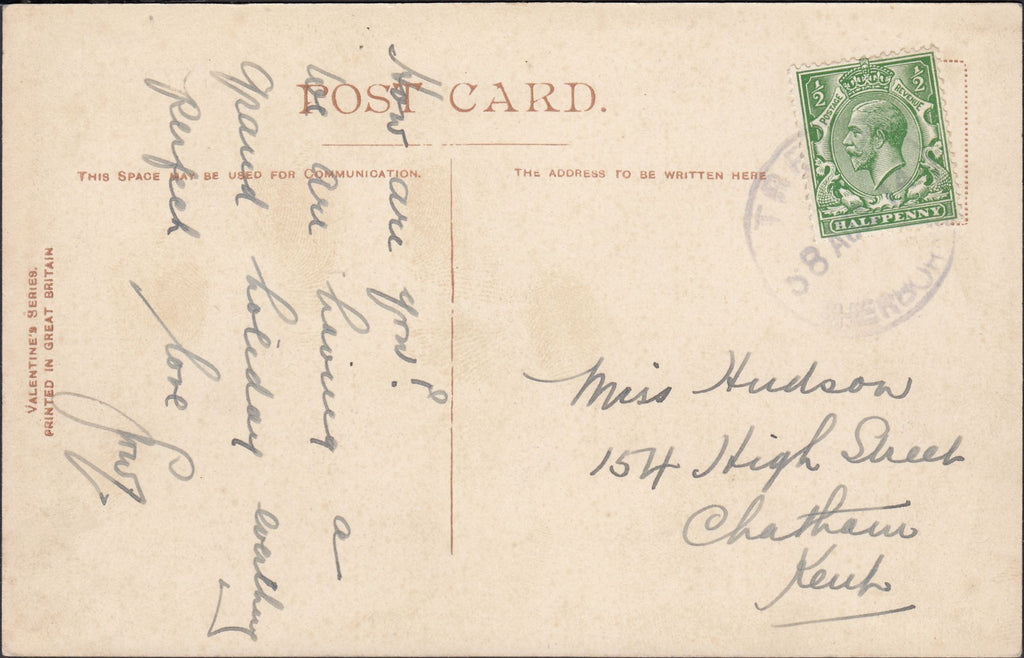 POST CARD.
THIS SPACE MAY BE USED FOR COMMUNICATION.
THE ADDRESS TO BE WRITTEN HERE
VALENTINE'S SERIES.
PRINTED IN GREAT BRITAIN
How are you?
We are having a
grand holiday everthing
Perfect love
½ ½
POSTAGE REVENUE
HALFPENNY
8 AU
Miss Hudson
154 High Street
Chatham
Kent